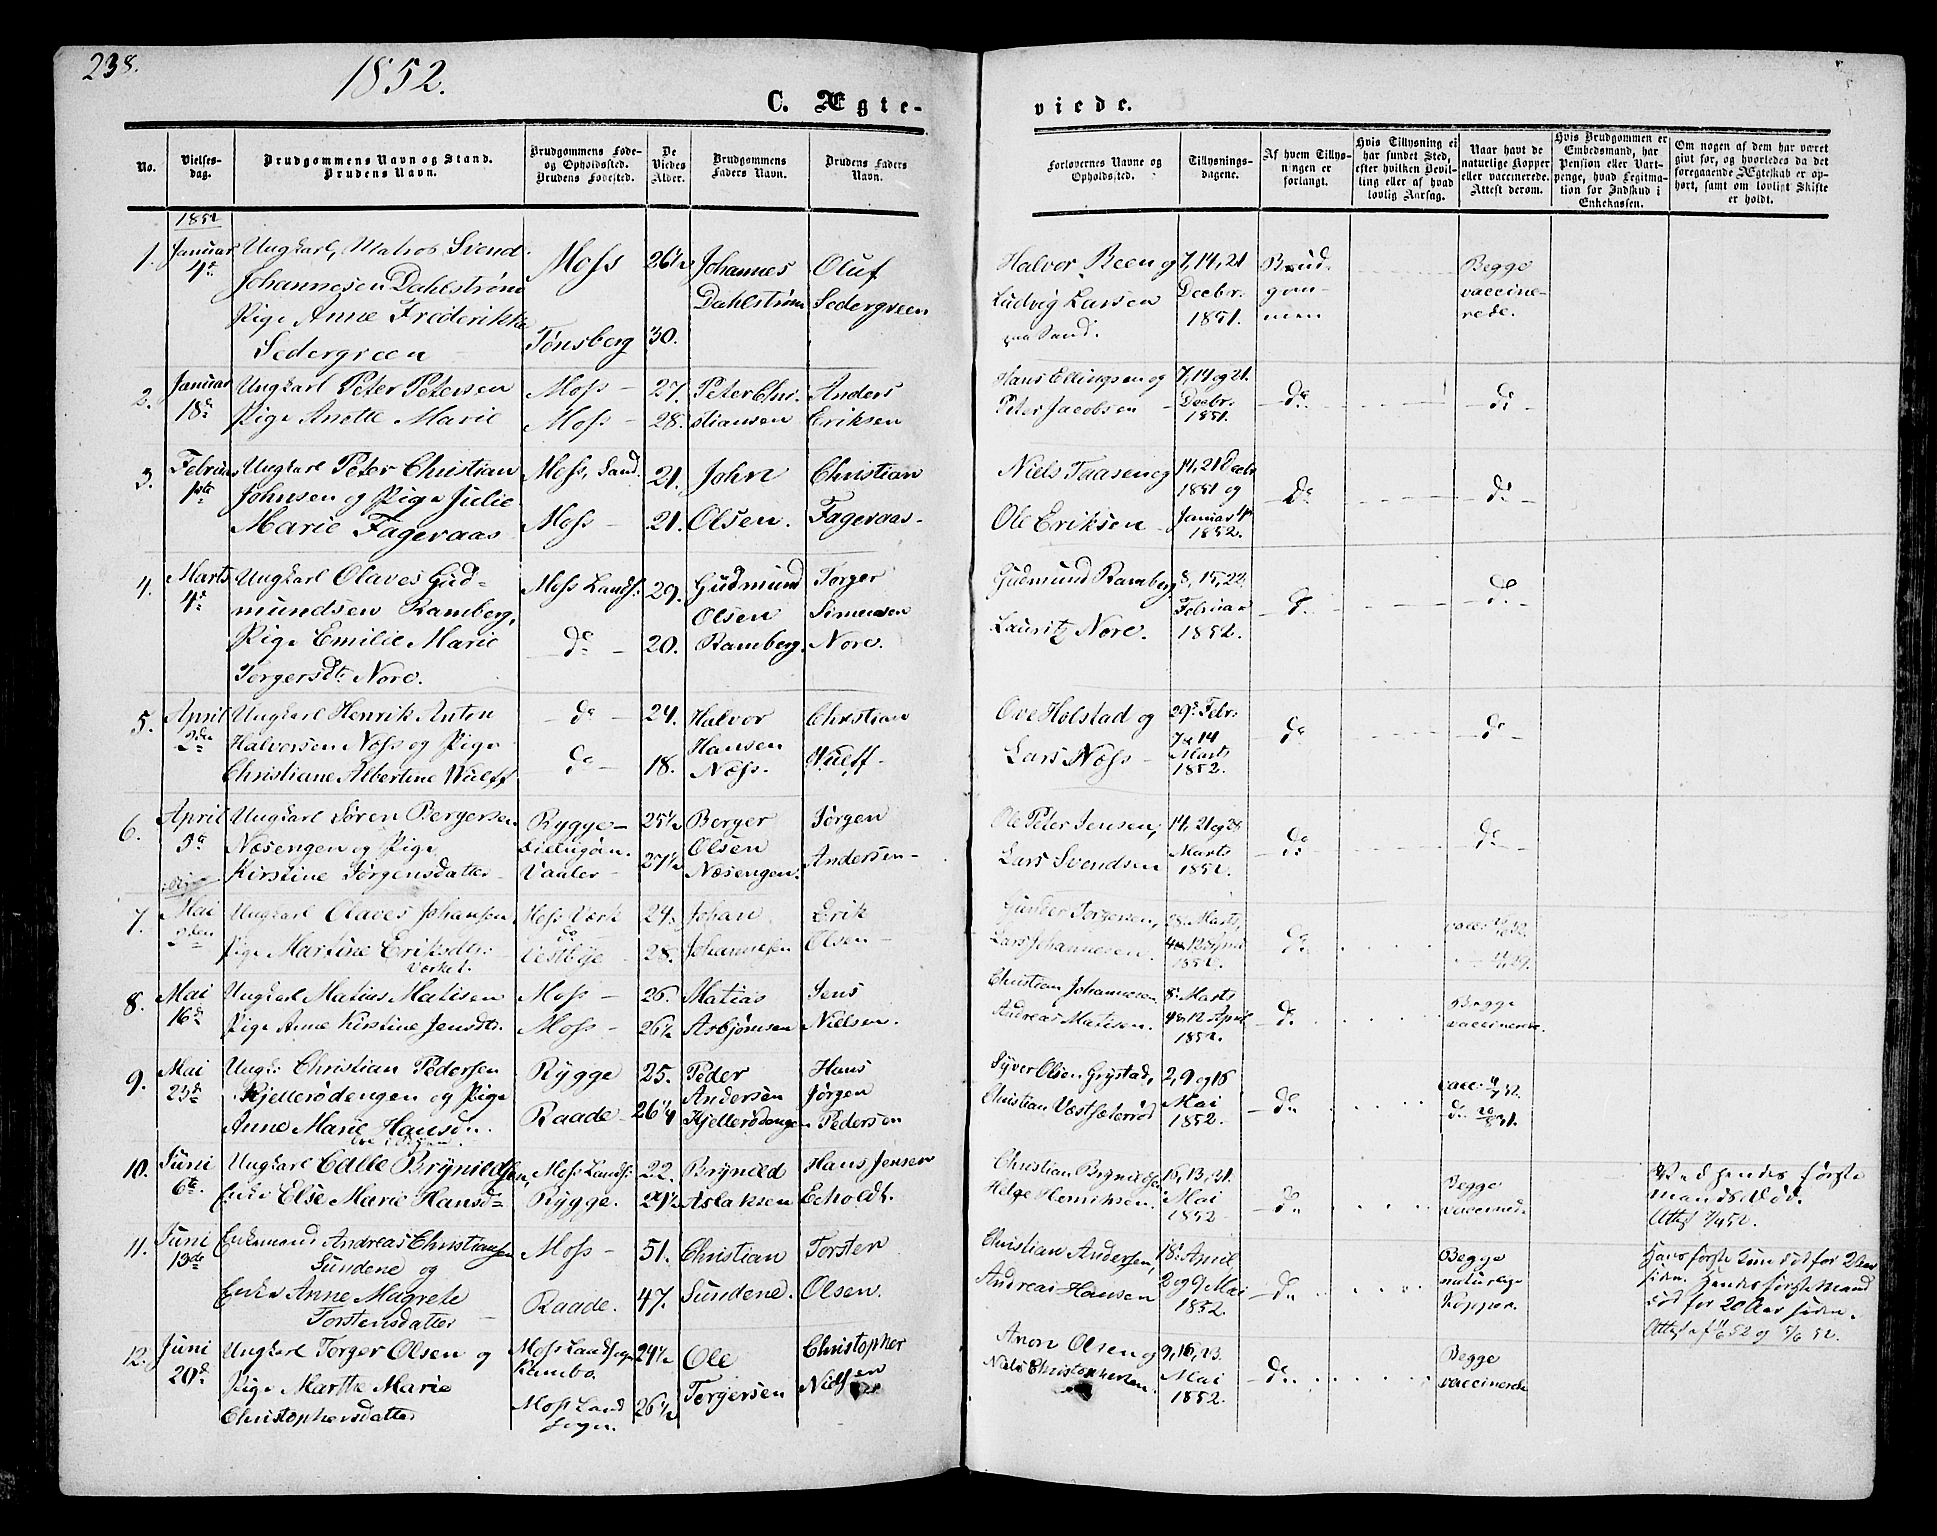 238.
1852.
C. Ægte-
viede.
No.
Vielses-
dag.
Brudgommens Navn og Stand.
Brudens Navn.
Brudgommens Føde-
og Opholdssted.
Brudens Fødested.
De
Viedes
Alder.
Brudgommens
Faders Navn.
Brudens Faders
Navn.
Forlovernes Navne og
Opholdssted.
Tillysnings-
dagene.
Af hvem Tillys-
ningen er
forlangt.
Hvis Tillysning ei
har fundet Sted,
efter hvilken Bevil-
ling eller af hvad
lovlig Aarsag.
Naar havt de
naturlige Kopper
eller vaccinerede.
Attest derom.
Hvis Brudgommen er
Embedsmand, har
Pension eller Vart-
penge, hvad Legitima-
tion for Indskud i
Enkekassen.
Om nogen af dem har været
gift før, og hvorledes da det
foregaaende Ægteskab er op-
hørt, samt om lovligt Skifte
er holdt.
1852
1. Januar 4de Ungkarl, Matros Svend Moss 26½ Johannes Oluf
Johannesen Dahlstrøm Dahlstrøm Sedergreen
Pige Anne Frederikke Tønsberg 30.
Sedergreen
Halvor Reen og 7, 14, 21 Brud- Begge
Ludvig Larsen Decbr. gom- vaccine-
paa Sand. 1851. men rede.
2. Januar Ungkarl Peter Petersen Moss - 27. Peter Chri- Anders
18de Pige Anette Marie Moss - 28. stiansen Eriksen
Hans Ellingsen og 7, 14 og 21.
Peter Jacobsen Decbr. do do
1851.
3. Februar Ungkarl Peter Christian Moss, Sand. 21. John Christian
1ste Johnsen og Pige Julie Moss - 21. Olsen. Fageraas-
Marie Fageraas
Niels Taasen og 14, 21 Decbr
1851 og do do
Ole Eriksen Januar
1852.
4. Marts Ungkarl Olaves Gud- Moss Lands. 29. Gudmund Torger
4de mundsen Ramberg, Olsen Simensen
Pige Emilie Marie do 20. Ramberg. Nore.
Torgersdtr Nore.
Gudmund Ramberg 8, 15, 22
Februar do do
Lauritz Nore. 1852.
5. April Ungkarl Henrik Anton do 24. Halvor Christian
2den Halvorsen Næss og Pige Hansen
Christiane Albertine Wulff do 18. Næss. Wulff.
Ove Holstad og 29de Febr.
7 & 14 do do
Lars Næss - Marts
1852.
6. April Ungkarl Søren Bergersen Rygge- 25½ Berger Jørgen
Næsengen og Pige Olsen
Kirstine Jørgensdatter Vanler- 27½ Næsengen. Andersen-
Ole Peter Jensen, 14, 21 og 28
Marts do do
Lars Svendsen 1852.
7. Mai Ungkarl Olaves Johansen Moss Værk 24. Johan Erik
2den Pige Martine Eriksdtr. Vestbye 28. Johannesen Olsen-
Værket.
Gunder Torgersen, 28. Marts,
Lars Johannesen. 4 & 12 April do
1852.
8. Mai Ungkarl Matias Matisen Moss - 26. Matias Jens
16de Pige Anne Kirstine Jensdtr. Moss - 26½ Asbjørnsen Nielsen.
Christian Johannesen Marts Begge
Andreas Matisen. 4 & 12 April do vaccinerede.
1852.
9. Mai Ungk. Christian Pedersen Rygge 25. Peder Hans
23de Kjellerødengen og Pige Andersen Jørgen
Anne Marie Hansdtr. Raade - 26¼ Kjellerødengen Pedersen
Syver Olsen Grystad, 2, 9 og 16
Christian Vestfæterød Mai do
1852.
10. Juni Ungkarl Calle Brynildsen, Moss Lands. 22. Brynild Hans Jensen
6te Enke Else Marie Hansd Rygge. 29½ Aslaksen Echoldt.
Christian Brynildsen 16, 23, 31. Begge Ved hendes første
Helge Henriksen. Mai do vaccinerede. Mands Død.
1852
11. Juni Enkemand Andreas Christiansen Moss - 51. Christian Torsten
13de Sundene og
Enke Anne Magrete Raade. 47. Sundene. Olsen.
Torstensdatter
Christian Andersen, 18. April Begge Hans første Kone død for 2 Aar
Andreas Hansen 2 og 9 Mai do naturlige siden. Hendes første Mand
1852 Kopper. død for 20 Aar siden.
12. Juni Ungkarl Torger Olsen og Moss Landsogn 24½ Ole Christopher
20de Pige Marthe Marie Kambo. Torgersen Nielsen
Christophersdatter Moss Land 26½
sogn.
Aron Olsen og 9, 16, 23. Begge
Niels Christophersen. Mai do vaccinerede
1852.